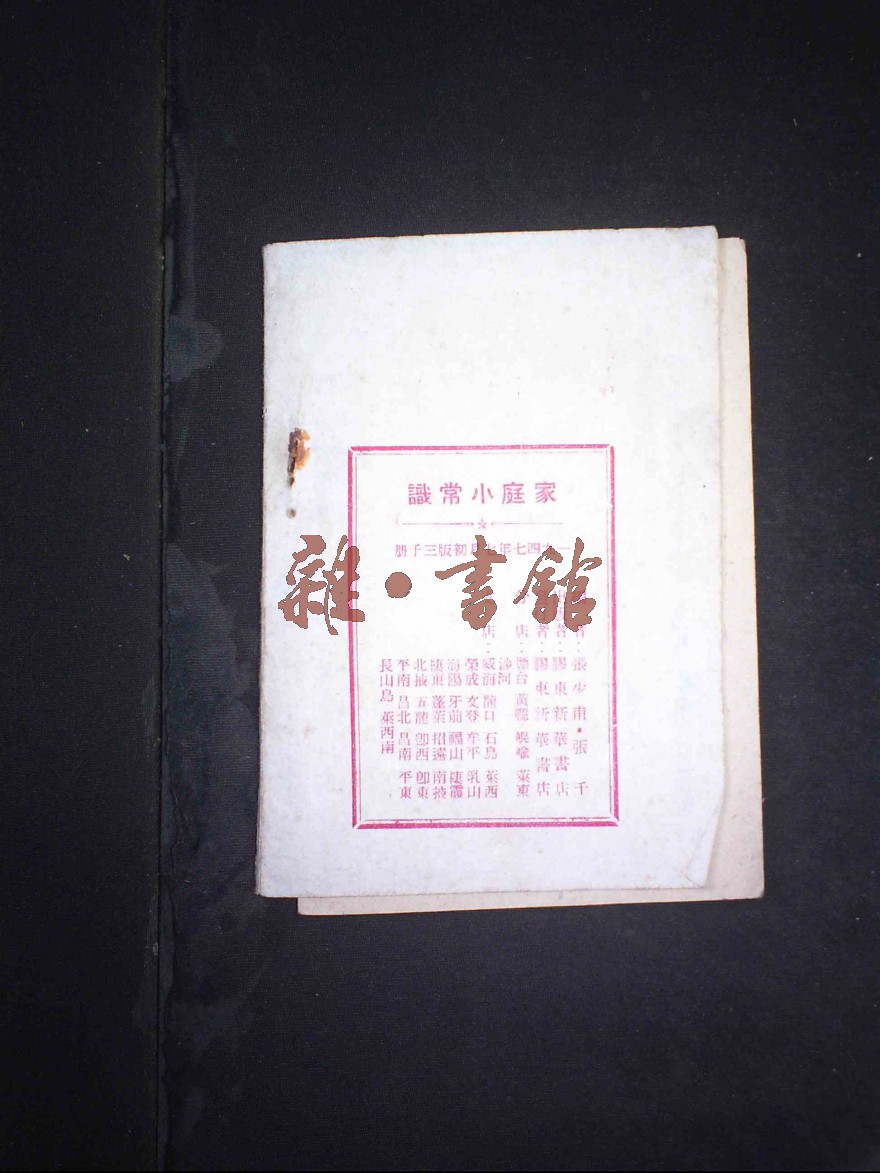 家庭小常識
一九四七年 月初版三千册
者：張少甫・張千
者：膠東新華書店
者：膠東新華書店
店：煙台 黃縣 崐嵛 萊東
沙河
店：威海 龍口 石島 萊西
榮成 文登 牟平 乳山
海陽 牙前 福山 棲霞
棲東 蓬萊 招遠 南掖
北掖 五龍 即西 即東
平南 昌北 昌南 平東
長山島 萊西南
雜・書館